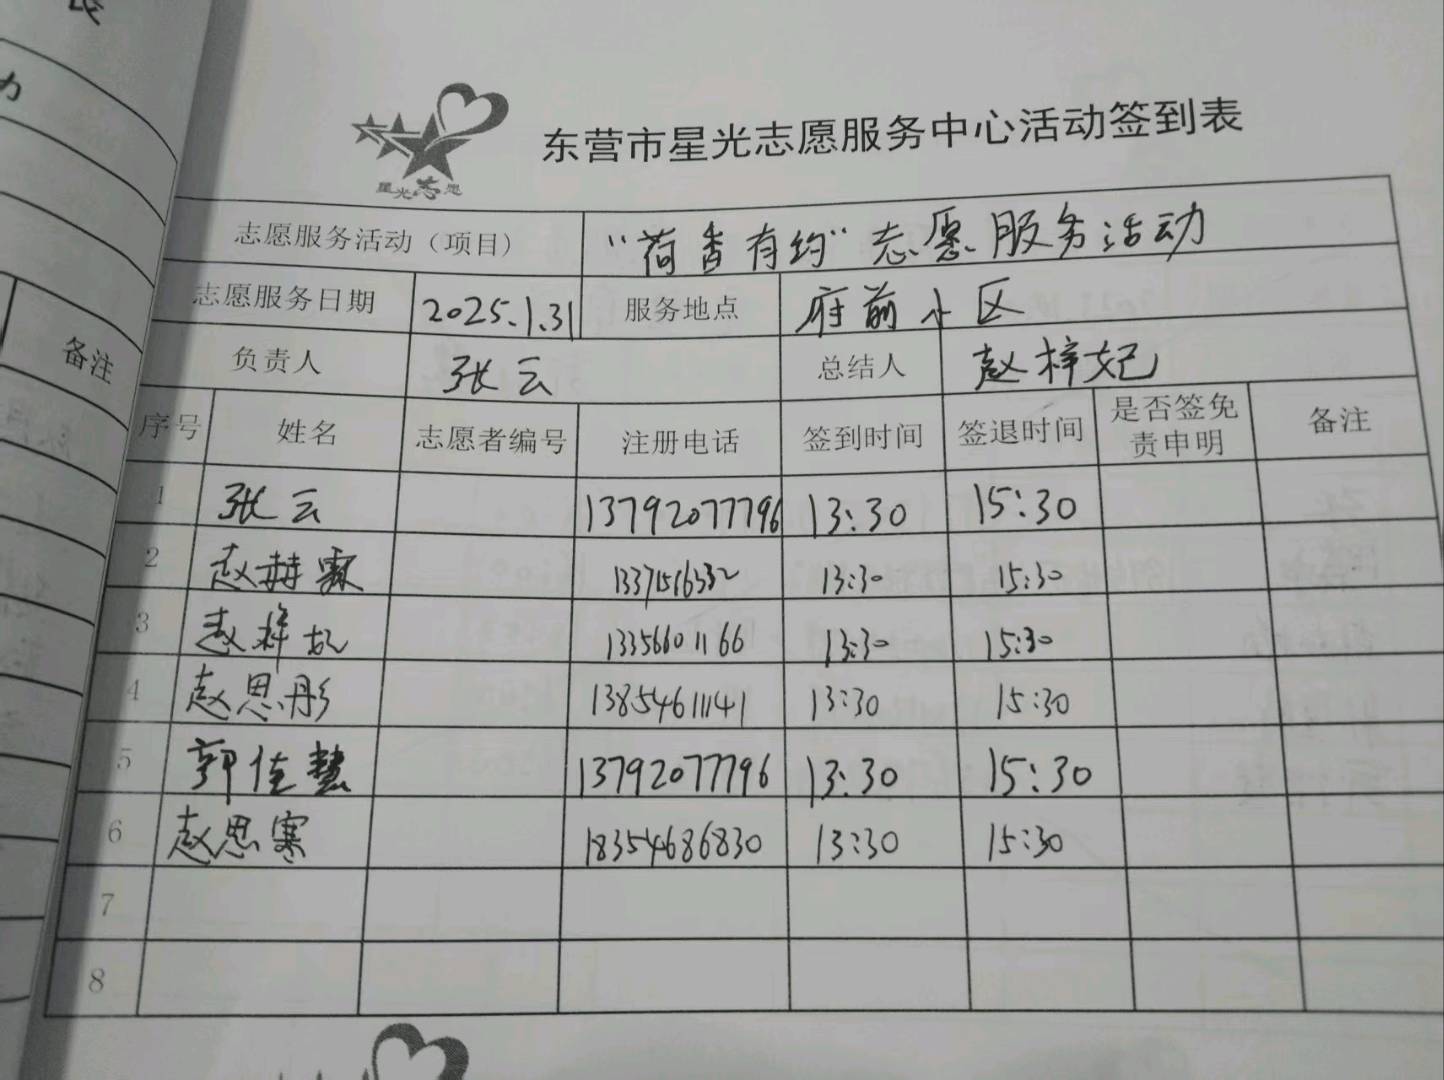 备注
星光志愿
东营市星光志愿服务中心活动签到表
志愿服务活动（项目） “荷香有约”志愿服务活动
志愿服务日期 2025.1.31 服务地点 府前小区
负责人 张云 总结人 赵梓妃
序号 姓名 志愿者编号 注册电话 签到时间 签退时间 是否签免责申明 备注
1 张云 13792077796 13:30 15:30
2 赵赫霖 13:30 15:30
3 赵梓妃 13356601166 13:30 15:30
4 赵思彤 13854611141 13:30 15:30
5 郭佳慧 13792077796 13:30 15:30
6 赵思寒 18354686830 13:30 15:30
7
8